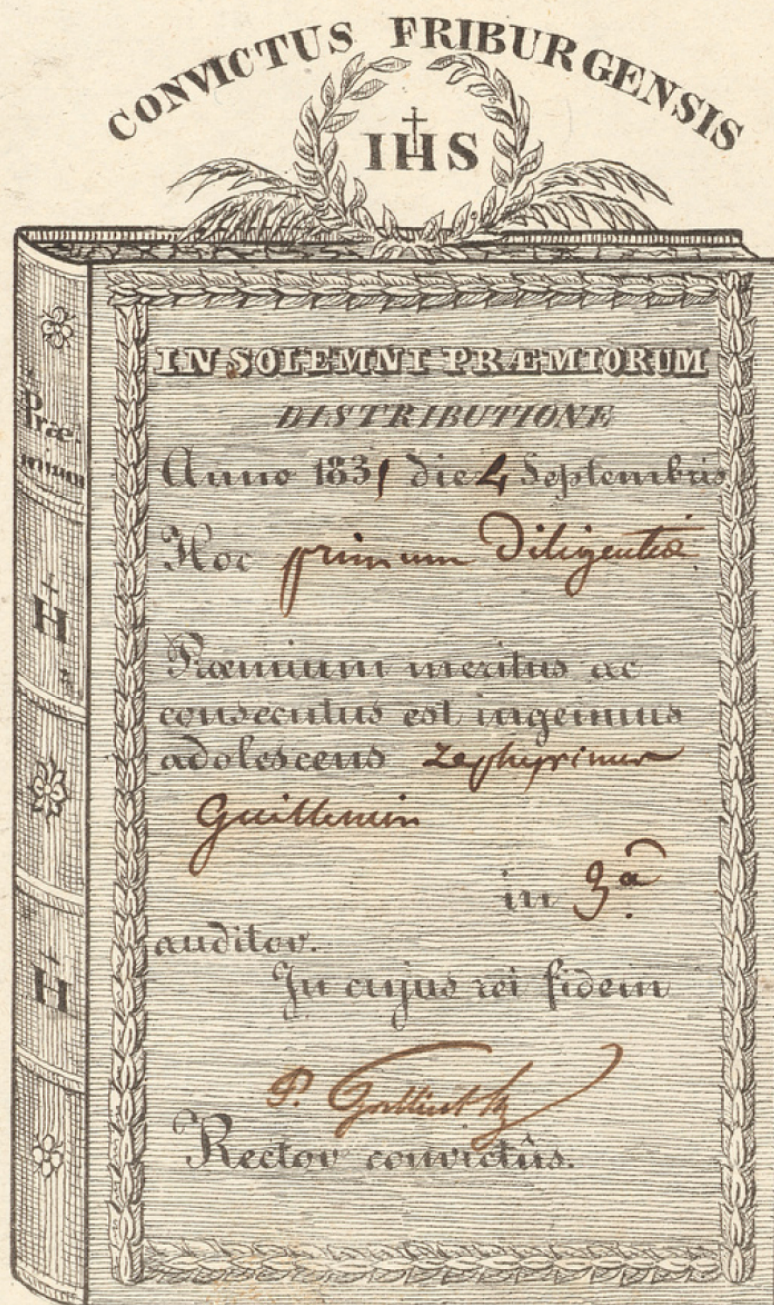 CONVICTUS FRIBURGENSIS
IHS
IN SOLEMNI PRÆMIORUM
DISTRIBUTIONE
Anno 1831 die 4 Septembris
Hoc primum Diligentiæ
Præmium meritus ac
consecutus est ingenuus
adolescens Zephyrinus
Guillemin
in 3ª
auditor.
In cujus rei fidem
P.
Rector convictûs.
Præ-
mium
H
H